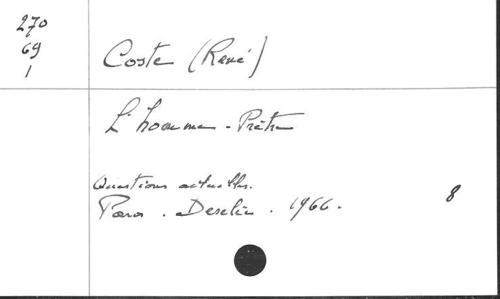 270
69
1
Coste (René)
L'homme-Prêtre
Questions actuelles.
Paris. Desclée. 1966.
8